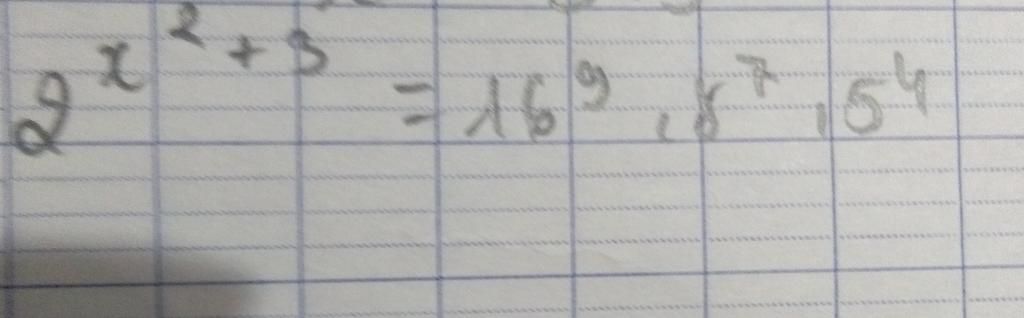 2^{x^2+3} = 16^9 . 8^7 . 5^4